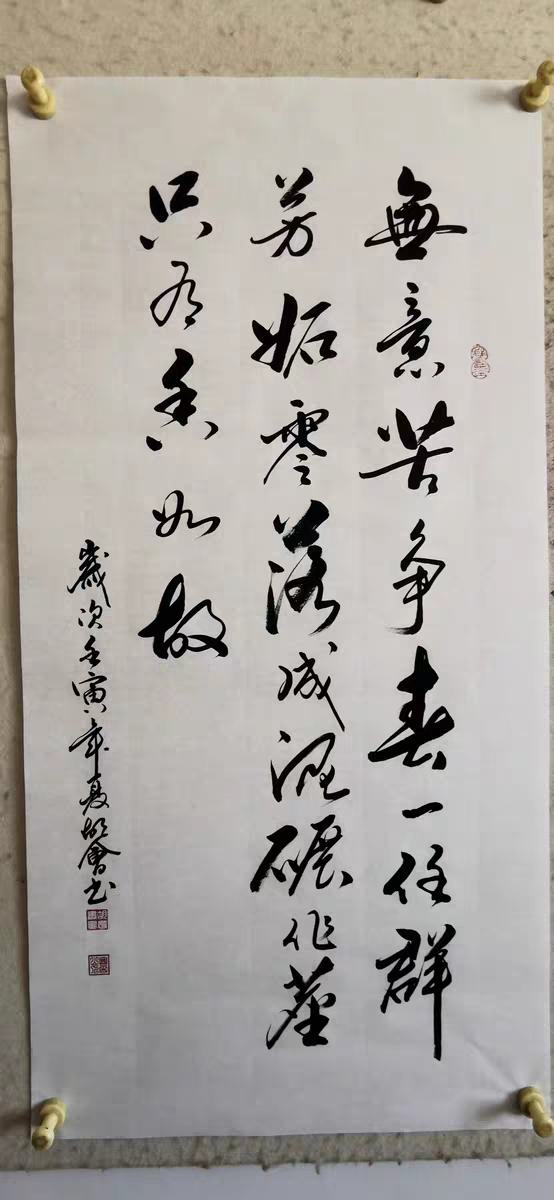 無意苦争春一任群
芳妬零落成泥碾作塵
只有香如故
歲次壬寅年夏胡會书